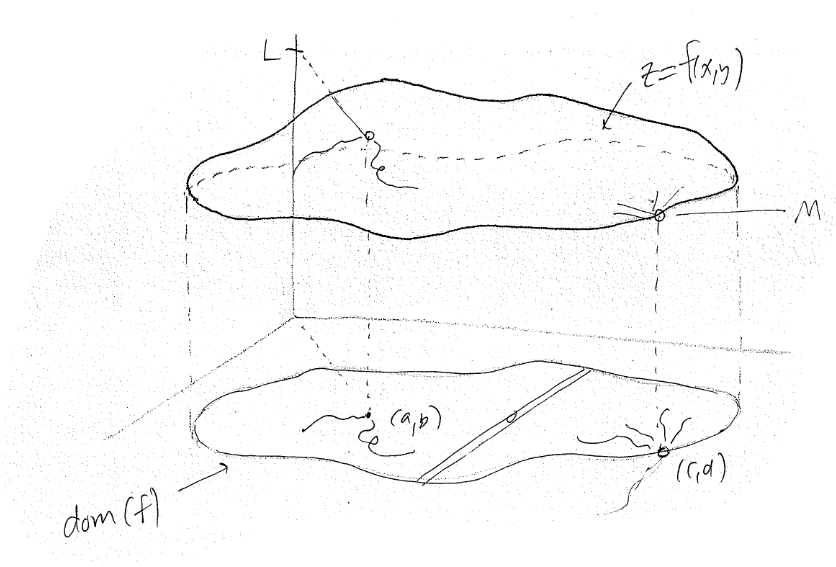 L
z=f(x,y)
M
(a,b)
(c,d)
dom(f)